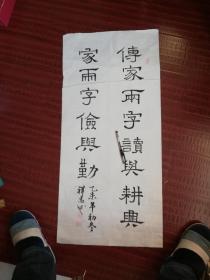 傳家兩字讀與耕興
家兩字儉與勤
乙未年初冬